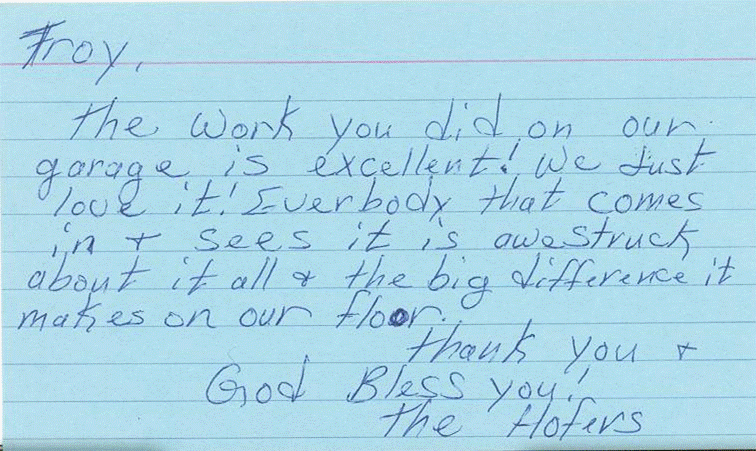 Troy,
the work you did on our
garage is excellent! We Just
love it! Everbody that comes
in + sees it is awestruck
about it all & the big difference it
makes on our floor.
thank you +
God Bless you!
the Hofers